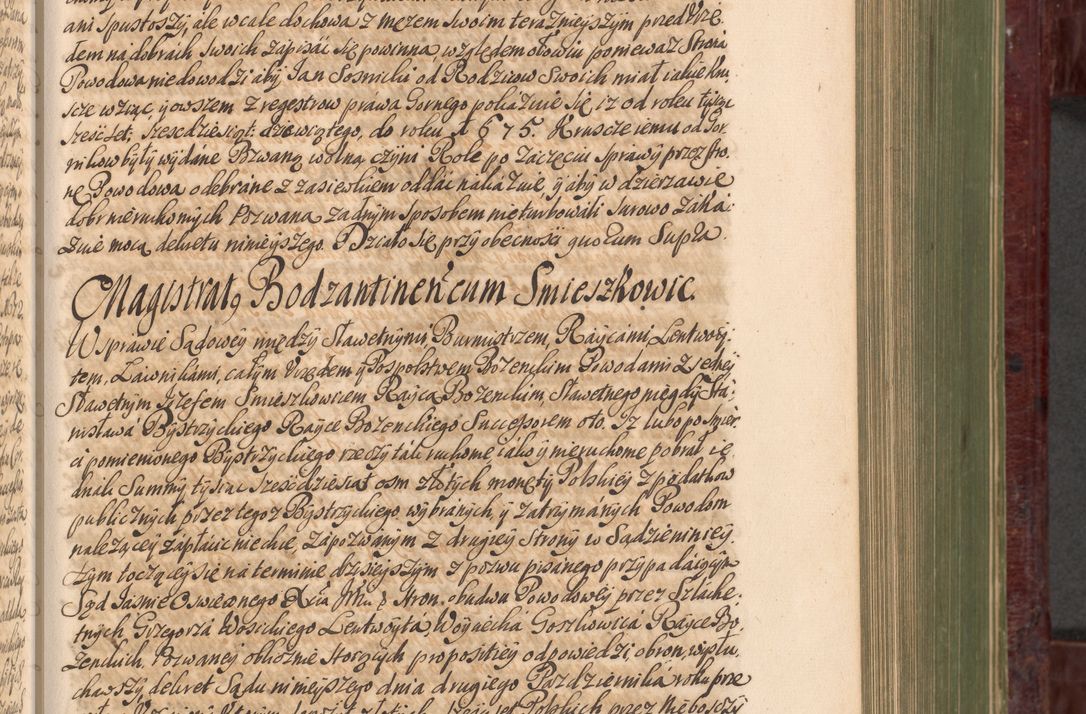 ani spustoszy, ale wcale dochowa z mężem swoim teraznieyszym przed Urzę
dem na dobrach swoich zapisać się powinna, względem ołowiu ponieważ Strona
Powodowa niedowodzi aby Jan Sosnicki od Rodzicow Swoich miał iakie Kru
szce wziąc, y owszem z regestrow prawa Gornego pokazuie się, iz od roku tysiąc
szesc set. szescdziesiąt. dziewiątego, do roku 1675. Kruszce iemu od Gor
nikow były wydane Pozwaną wolną czyni Role po zaczęciu sprawy przez stro
nę Powodowa odebrane z zasiewkiem oddać nakazuie, y aby w dzierzawie
dobr nieruchomych Pozwana zadnym sposobem nieturbowali surowo zaka
zuie mocą dekretu ninieyszego. Działo się przy obecnosci quo Cum Supra
Magistratus Bodzantinen cum Smieszkowic.
W sprawie Sądowey między Sławetnymi Burmistrzem, Raycami, Lentwoy
tem, Ławnikami, całym Urzędem y Pospolstwem Bozenckim Powodami z iedney
Sławetnym Jozefem Smieszkowicem Raycą Bozenckim, Sławetnego niegdy Sta
nisława Bystrzyckiego Rayce Bozenckiego Successorem o to. Iz lubo po smier
ci pomienionego Bystrzyckiego rzeczy tak ruchome iako y nieruchome pobrał ie
dnak Summy tysiąc szescdziesiat osm złotych monety Polskiey z podatkow
publicznych przez tegoz Bystrzyckiego wybranych y zatrzymanych Powodom
nalezącey zapłacic niechce, zapozwanym z drugiey strony w Sądzie niniey
szym toczącey się na terminie dzisieyszym z pozwu pisanego przypadaiącym
Sąd Jasnie Oswieconego Xcia Jmci p stron. obudwu Powodowey przez Szlache
tnych, Grzegorza Wosickiego Lentwoyta, Woyciecha Goszkowica Rayce Bo
zenckich, Pozwaney oblicznie stoiących propozitiey odpowiedzi obron, wysłu
chawszy dekret Sądu ninieyszego dnia drugiego Pazdziernika roku prze